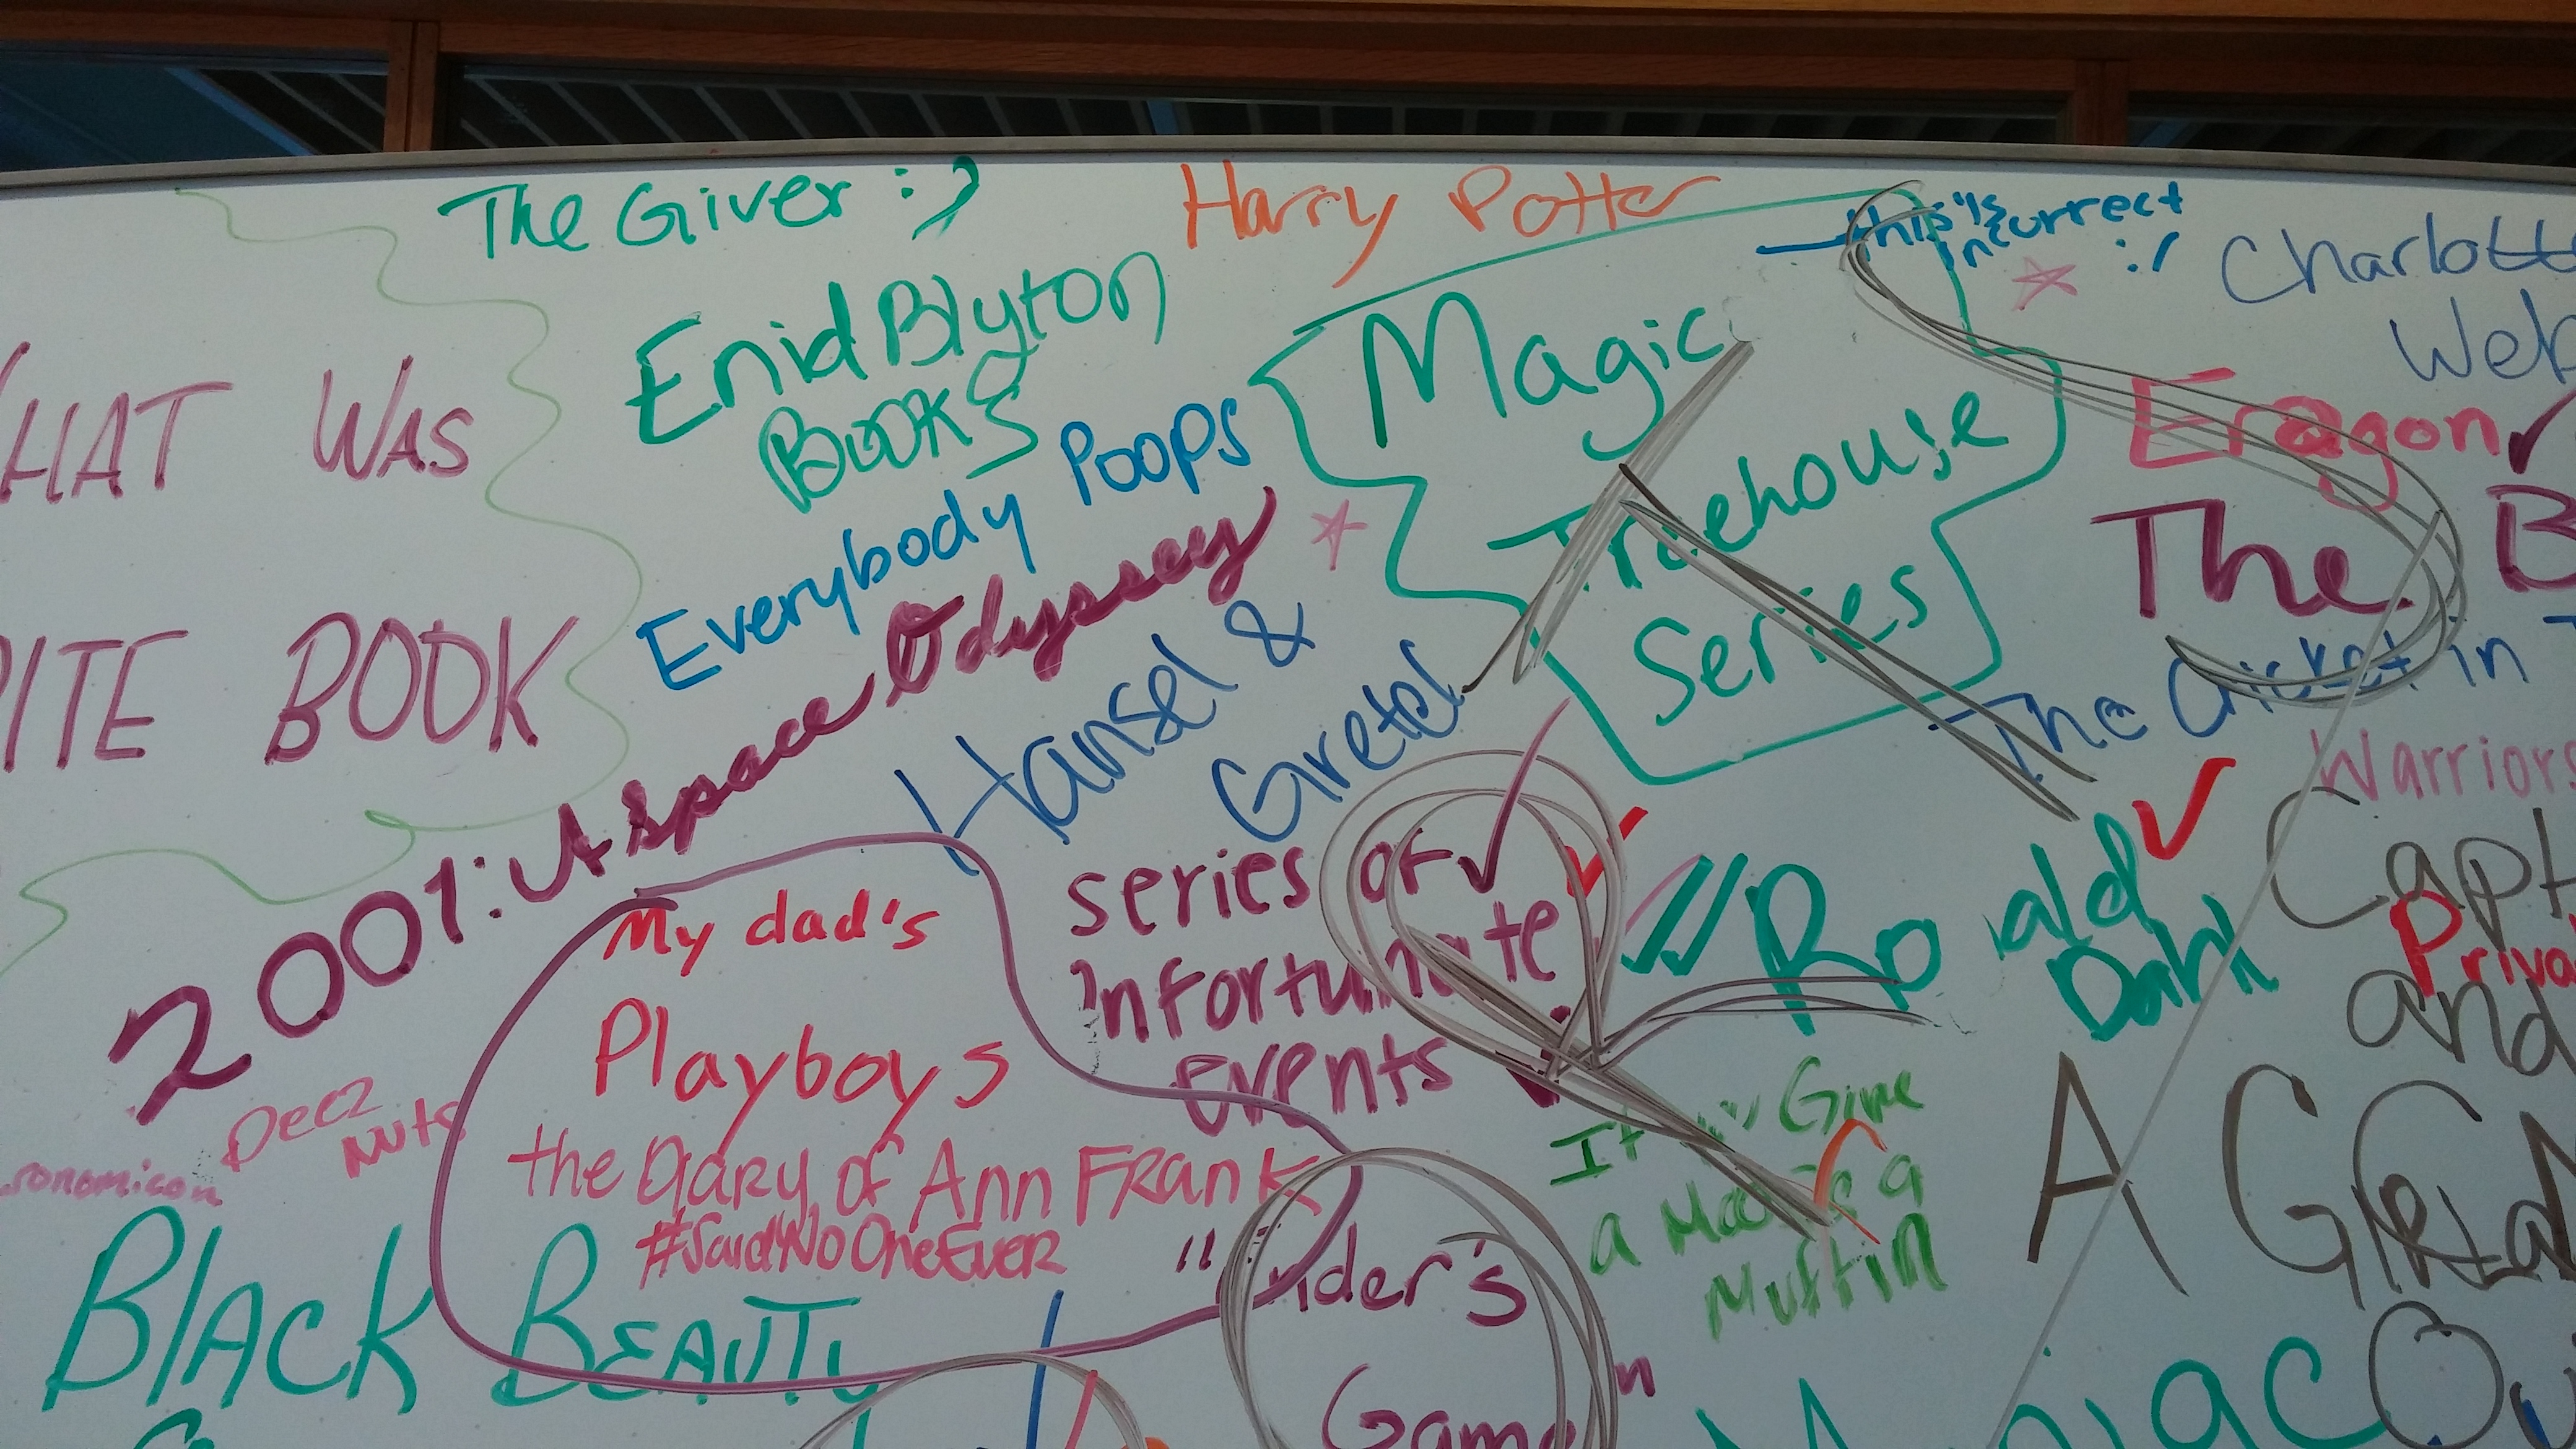 The Giver :)
Harry Potter
this is
incurrect
:/
Charlott
Web
Enid Blyton
Books
Magic
Treehouse
Series
Eragon
HAT WAS
Everybody Poops
The B
2001: A Space Odyssey
Hansel &
Gretel
The Cricket in T
ITE BOOK
Warriors
series of
unfortunate
events
Ro ald
Dahl
Capt
Priva
and
My dad's
Playboys
Deez
Nuts
the Diary of Ann Frank
#SaidNoOneEver
onomicon
If Give
a Moose a
Muffin
A
BLACK BEAUTY
"Ender's
Game"